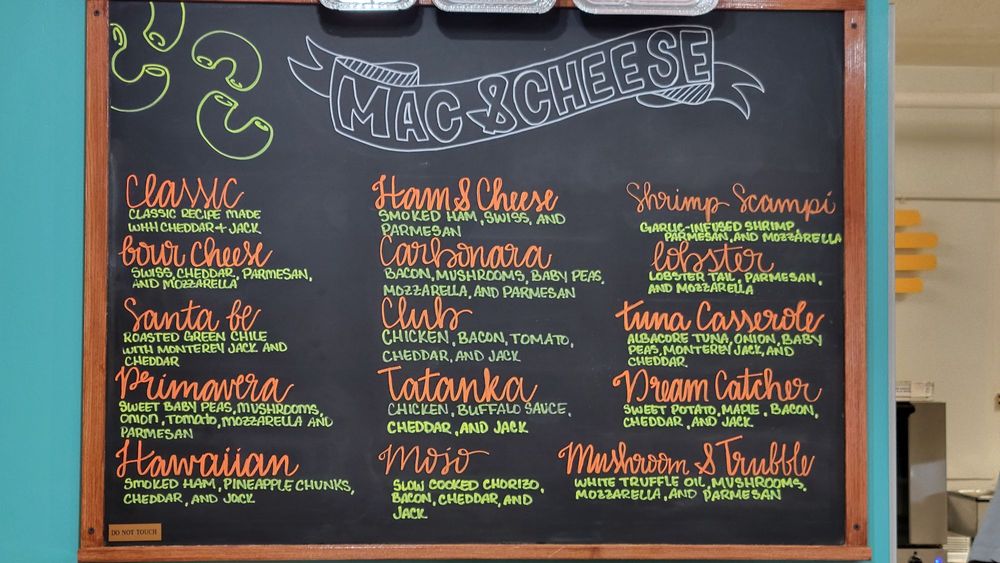 MAC & CHEESE
Classic
CLASSIC RECIPE MADE
WITH CHEDDAR + JACK
four cheese
SWISS, CHEDDAR, PARMESAN,
AND MOZZARELLA
Santa fe
ROASTED GREEN CHILE
WITH MONTEREY JACK AND
CHEDDAR
Primavera
SWEET BABY PEAS, MUSHROOMS,
ONION, TOMATO, MOZZARELLA AND
PARMESAN
Hawaiian
SMOKED HAM, PINEAPPLE CHUNKS,
CHEDDAR, AND JACK
Ham & Cheese
SMOKED HAM, SWISS, AND
PARMESAN
Carbonara
BACON, MUSHROOMS, BABY PEAS,
MOZZARELLA, AND PARMESAN
Club
CHICKEN, BACON, TOMATO,
CHEDDAR, AND JACK
Tatanka
CHICKEN, BUFFALO SAUCE,
CHEDDAR, AND JACK
Mojo
SLOW COOKED CHORIZO,
BACON, CHEDDAR, AND
JACK
Shrimp Scampi
GARLIC-INFUSED SHRIMP,
PARMESAN, AND MOZZARELLA
lobster
LOBSTER TAIL, PARMESAN,
AND MOZZARELLA
tuna Casserole
ALBACORE TUNA, ONION, BABY
PEAS, MONTEREY JACK, AND
CHEDDAR
Dream Catcher
SWEET POTATO, MAPLE, BACON,
CHEDDAR, AND JACK
Mushroom & Truffle
WHITE TRUFFLE OIL, MUSHROOMS,
MOZZARELLA, AND PARMESAN
DO NOT TOUCH